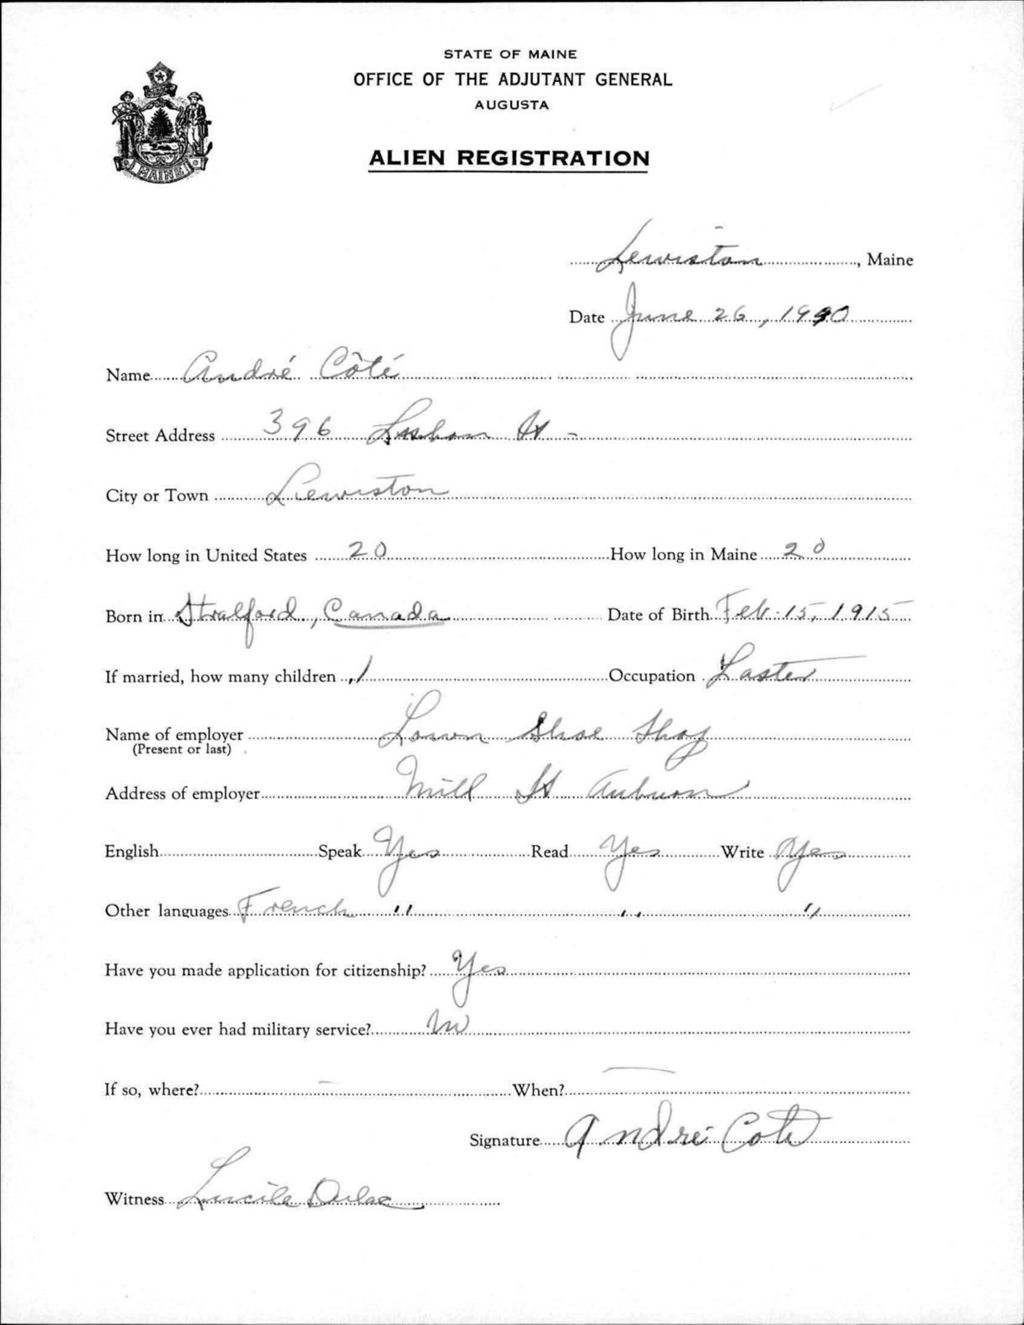 STATE OF MAINE
OFFICE OF THE ADJUTANT GENERAL
AUGUSTA
ALIEN REGISTRATION
MAINE
Lewiston, Maine
Date June 26, 1940
Name André Côté
Street Address 396 Lisbon St -
City or Town Lewiston
How long in United States 20 How long in Maine 20
Born in Stratford, Canada Date of Birth Feb. 15, 1915
If married, how many children 1 Occupation Laster
Name of employer Lown Shoe Shop
(Present or last)
Address of employer Mill St Auburn
English Speak Yes Read Yes Write Yes
Other languages French " " "
Have you made application for citizenship? Yes
Have you ever had military service? No
If so, where? - When? -
Signature André Coté
Witness Lucile Dulac